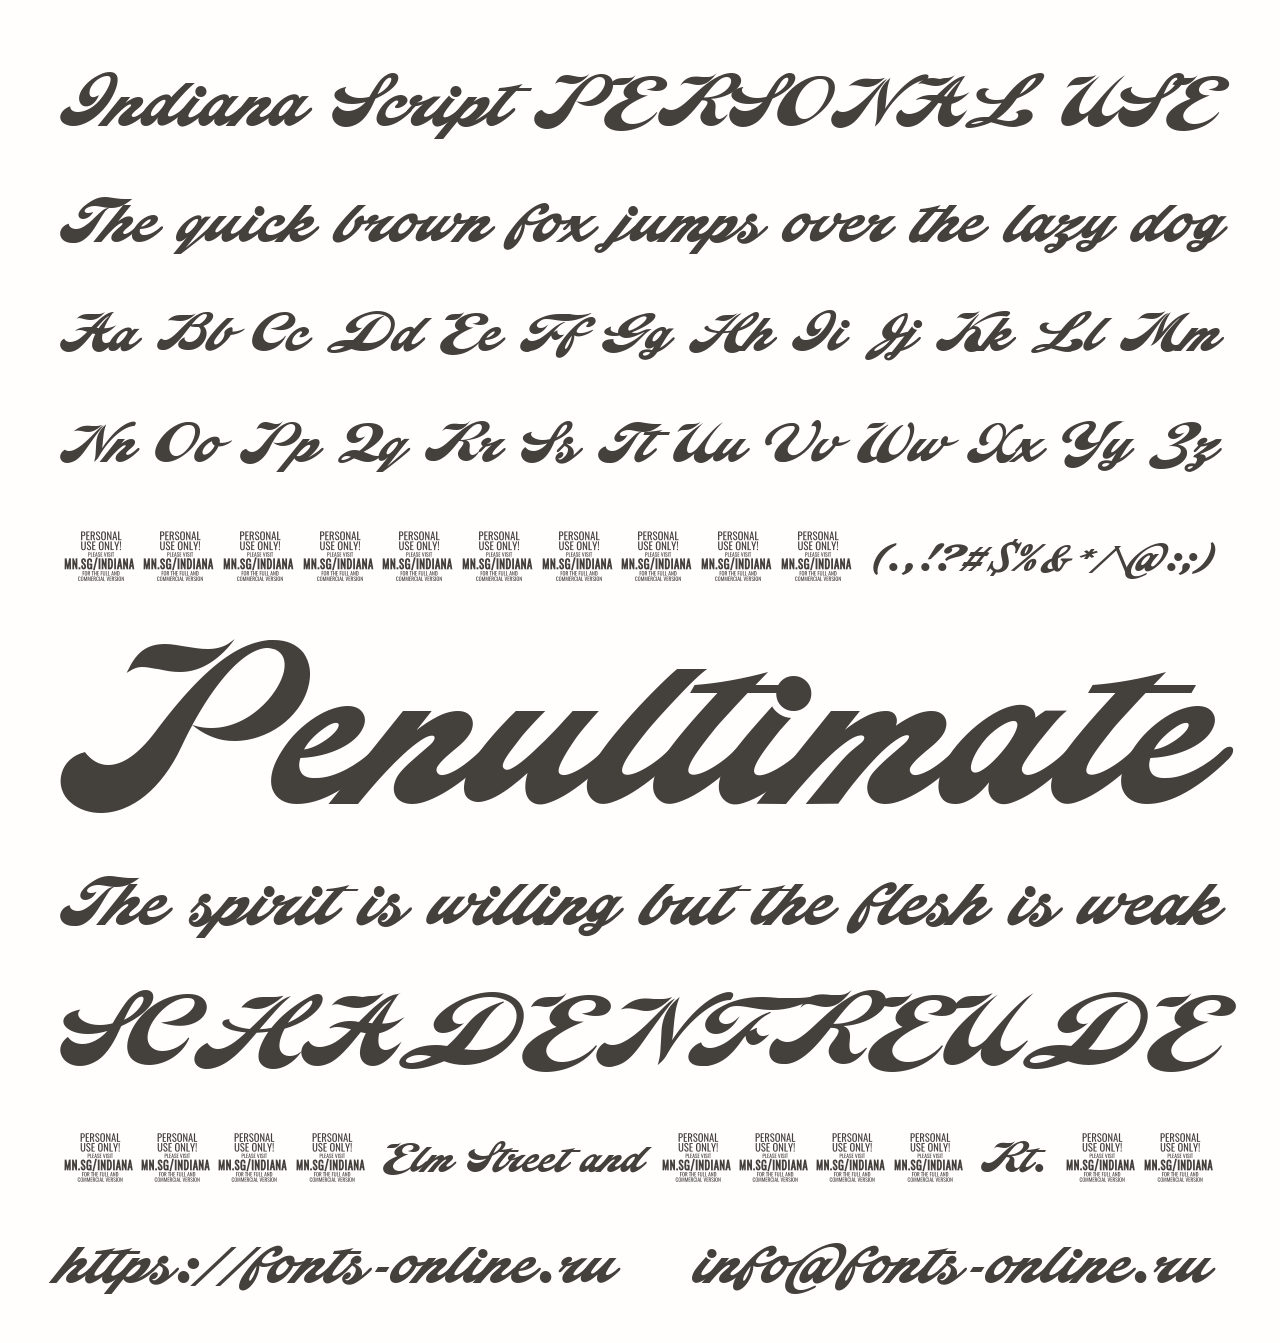 Indiana Script PERSONAL USE
The quick brown fox jumps over the lazy dog
Aa Bb Cc Dd Ee Ff Gg Hh Ii Jj Kk Ll Mm
Nn Oo Pp Qq Rr Ss Tt Uu Vv Ww Xx Yy Zz
PERSONAL PERSONAL PERSONAL PERSONAL PERSONAL PERSONAL PERSONAL PERSONAL PERSONAL PERSONAL
USE ONLY! USE ONLY! USE ONLY! USE ONLY! USE ONLY! USE ONLY! USE ONLY! USE ONLY! USE ONLY! USE ONLY!
PLEASE VISIT PLEASE VISIT PLEASE VISIT PLEASE VISIT PLEASE VISIT PLEASE VISIT PLEASE VISIT PLEASE VISIT PLEASE VISIT PLEASE VISIT
MN.SG/INDIANA MN.SG/INDIANA MN.SG/INDIANA MN.SG/INDIANA MN.SG/INDIANA MN.SG/INDIANA MN.SG/INDIANA MN.SG/INDIANA MN.SG/INDIANA MN.SG/INDIANA (.,!?#$%&*/\@:;)
FOR THE FULL AND FOR THE FULL AND FOR THE FULL AND FOR THE FULL AND FOR THE FULL AND FOR THE FULL AND FOR THE FULL AND FOR THE FULL AND FOR THE FULL AND FOR THE FULL AND
COMMERCIAL VERSION COMMERCIAL VERSION COMMERCIAL VERSION COMMERCIAL VERSION COMMERCIAL VERSION COMMERCIAL VERSION COMMERCIAL VERSION COMMERCIAL VERSION COMMERCIAL VERSION COMMERCIAL VERSION
Penultimate
The spirit is willing but the flesh is weak
SCHADENFREUDE
PERSONAL PERSONAL PERSONAL PERSONAL PERSONAL PERSONAL PERSONAL PERSONAL PERSONAL PERSONAL
USE ONLY! USE ONLY! USE ONLY! USE ONLY! USE ONLY! USE ONLY! USE ONLY! USE ONLY! USE ONLY! USE ONLY!
PLEASE VISIT PLEASE VISIT PLEASE VISIT PLEASE VISIT PLEASE VISIT PLEASE VISIT PLEASE VISIT PLEASE VISIT PLEASE VISIT PLEASE VISIT
MN.SG/INDIANA MN.SG/INDIANA MN.SG/INDIANA MN.SG/INDIANA Elm Street and MN.SG/INDIANA MN.SG/INDIANA MN.SG/INDIANA MN.SG/INDIANA Rt. MN.SG/INDIANA MN.SG/INDIANA
FOR THE FULL AND FOR THE FULL AND FOR THE FULL AND FOR THE FULL AND FOR THE FULL AND FOR THE FULL AND FOR THE FULL AND FOR THE FULL AND FOR THE FULL AND FOR THE FULL AND
COMMERCIAL VERSION COMMERCIAL VERSION COMMERCIAL VERSION COMMERCIAL VERSION COMMERCIAL VERSION COMMERCIAL VERSION COMMERCIAL VERSION COMMERCIAL VERSION COMMERCIAL VERSION COMMERCIAL VERSION
https://fonts-online.ru info@fonts-online.ru